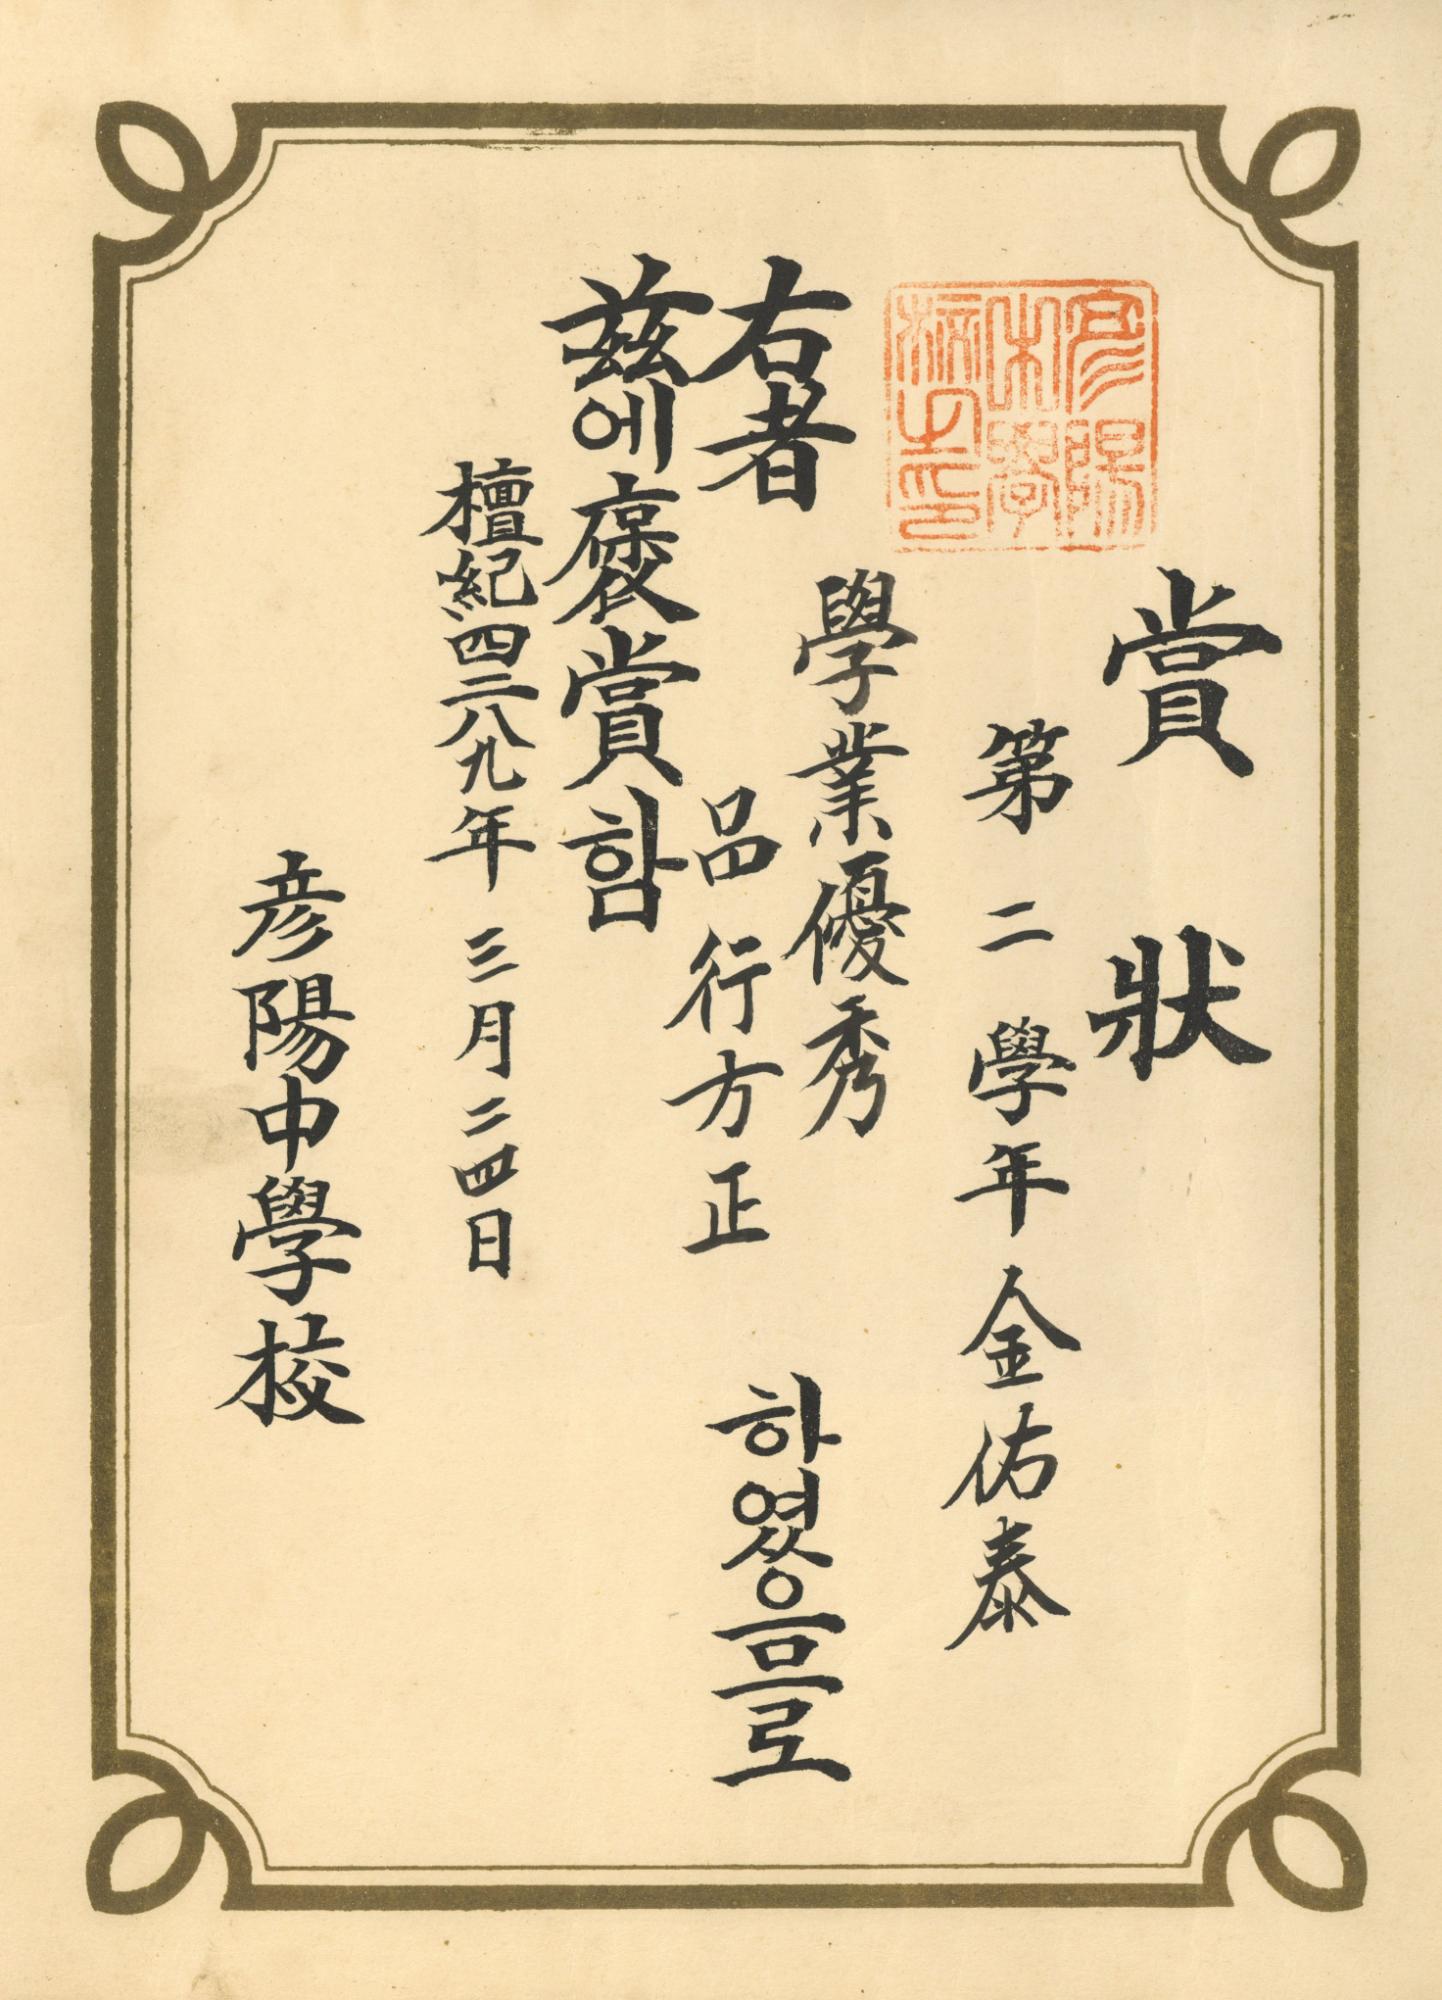 賞狀
第二學年 金佑泰
右者
學業優秀
品行方正
하였음므로
玆에褒賞함
檀紀四二八九年 三月二四日
彦陽中學校